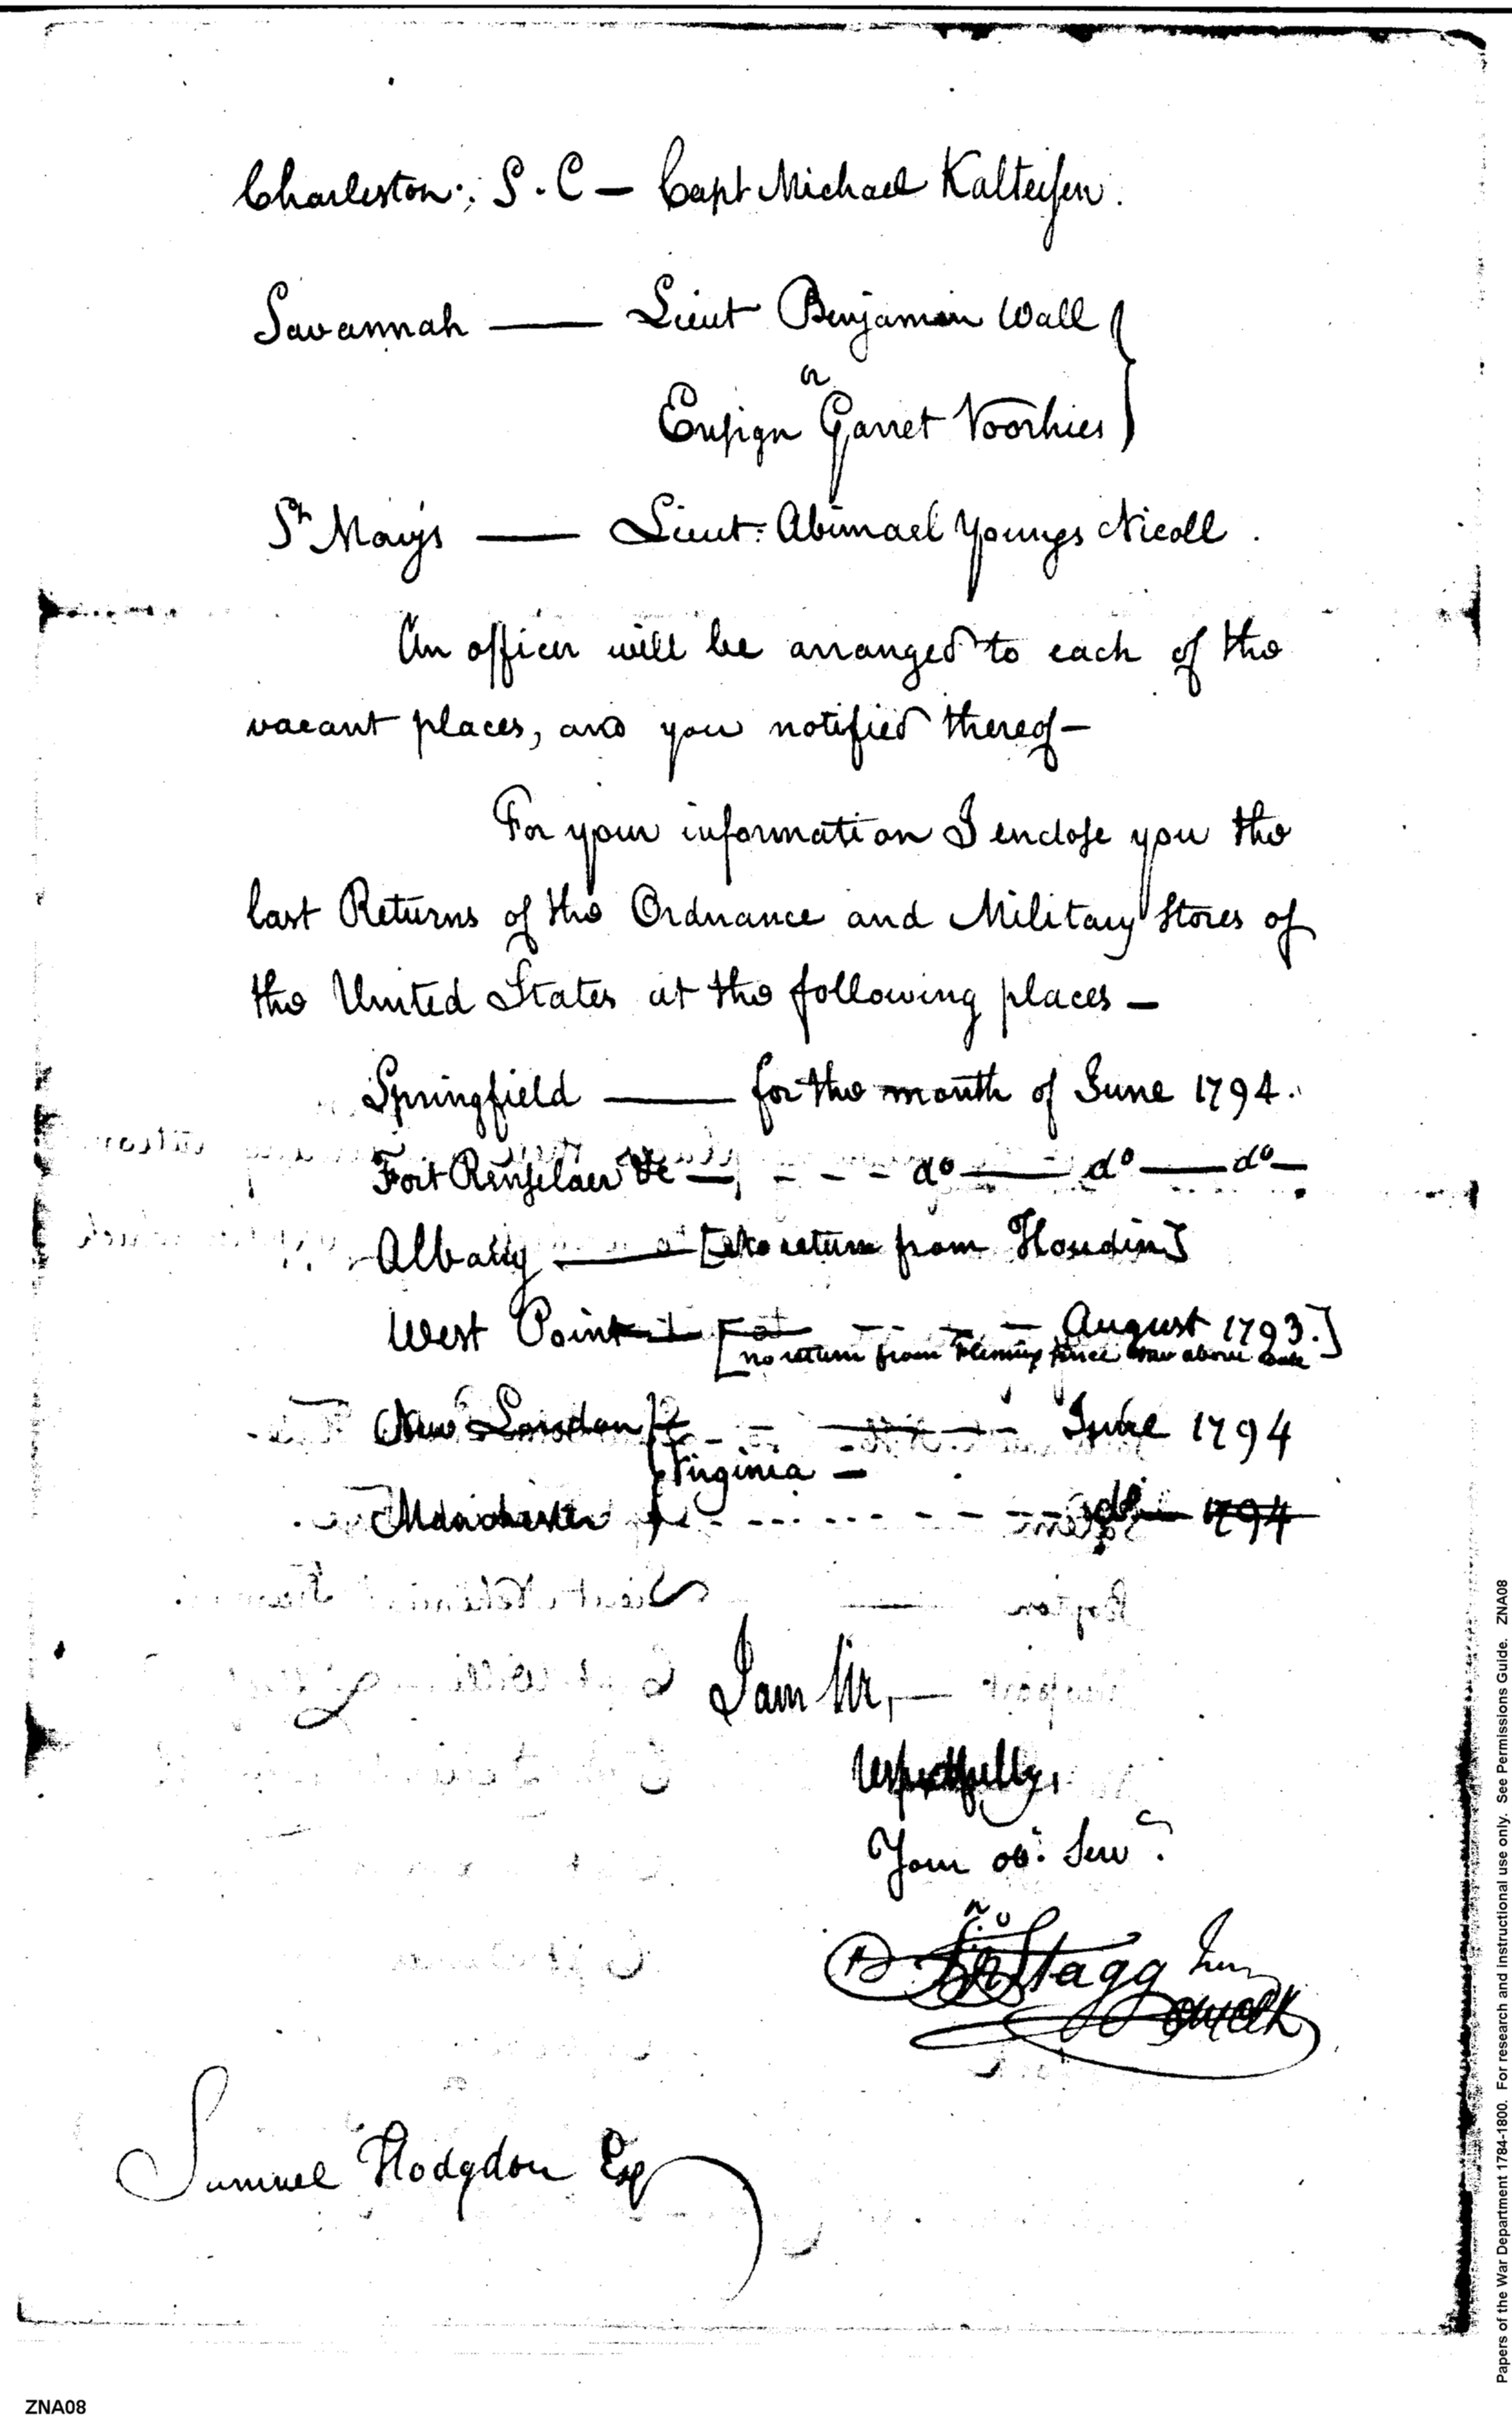 Charleston, S. C — Capt Michael Kalteisen.
Savannah — Lieut Benjamin Wall }
or
Ensign Garret Voorhies }
St Marys — Lieut: Abimael Youngs Nicoll.
An officer will be arranged to each of the
vacant places, and you notified thereof—
For your information I enclose you the
last Returns of the Ordnance and Military Stores of
the United States at the following places —
Springfield — for the month of June 1794.
Fort Renselaer &c — - - - do — do — do —
Albany — [no return from Houdin]
West Point — - - - August 1793.]
[no return from Fleming since the above date
New London } - - - June 1794
} Virginia —
Manchester } - - - do 1794
I am Sir,—
respectfully,
Your ob: Serv.
Jno Stagg Junr
Samuel Hodgdon Esq
Papers of the War Department 1784-1800. For research and instructional use only. See Permissions Guide. ZNA08
ZNA08